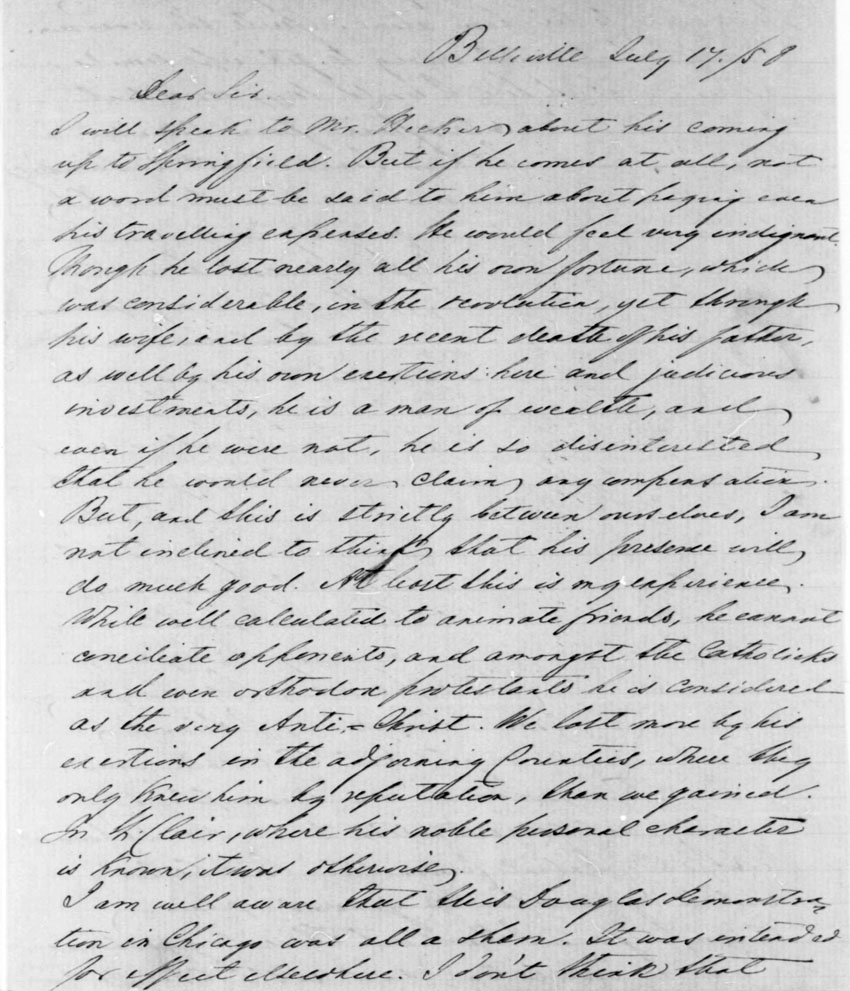 Belleville July 17./58
Dear Sir.
I will speak to Mr. Hecker about his coming
up to Springfield. But if he comes at all, not
a word must be said to him about paying even
his travelling expenses. He would feel very indignant.
Though he lost nearly all his own fortune, which
was considerable, in the revolution, yet through
his wife, and by the recent death of his father,
as well by his own exertions here and judicious
investments, he is a man of wealth, and
even if he were not, he is so disinterested
that he would never claim any compensation.
But, and this is strictly between ourselves, I am
not inclined to think that his presence will
do much good. At least this is my experience.
While well calculated to animate friends, he cannot
conciliate opponents, and amongst the Catholicks
and even orthodox protestants he is considered
as the very Anti-Christ. We lost more by his
exertions in the adjoining Counties, where they
only knew him by reputation, than we gained.
In St. Clair, where his noble personal character
is known, it was otherwise.
I am well aware that this Douglas demonstra-
tion in Chicago was all a sham. It was intended
for effect elsewhere. I don't think that